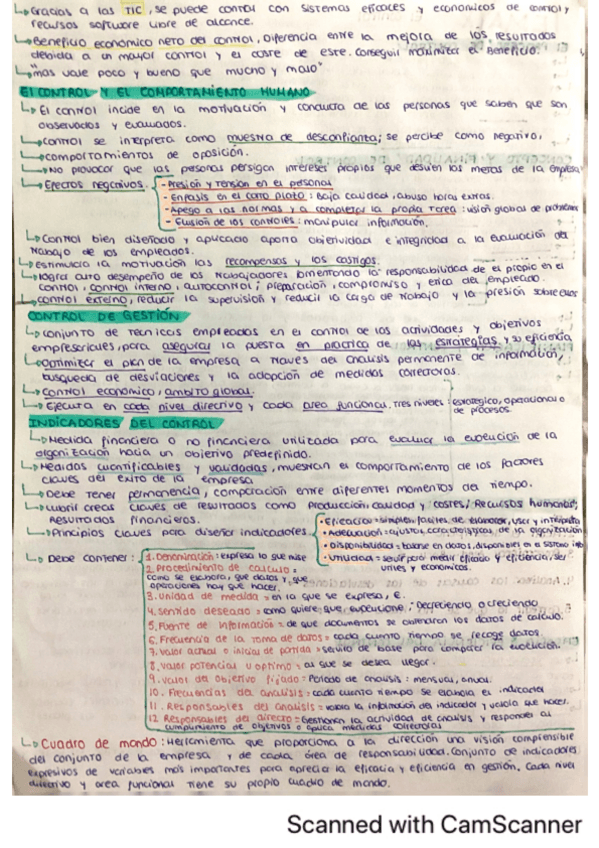 ↳ Gracias a las TIC, se puede control con sistemas eficaces y economicos de control y
recursos software libre de alcance.
↳ Beneficio economico neto del control, diferencia entre la mejora de los resultados
debida a un mayor control y el coste de este. Conseguir maximizar el Beneficio.
↳ "más vale poco y bueno que mucho y malo"
El CONTROL Y EL COMPORTAMIENTO HUMANO
↳ El control incide en la motivación y conducta de las personas que saben que son
observados y evaluados.
↳ control se interpreta como muestra de desconfianza; se percibe como negativo,
↳ comportamientos de oposición.
↳ No provocar que las personas persigan intereses propios que desvien los metas de la empresa
↳ Efectos negativos.
- Presión y Tensión en el personal
- Enfasis en el corto plazo: Baja calidad, abuso horas extras.
- Apego a las normas y a completar la propia tarea: visión global de problemas
- Elusión de los controles: manipular información.
↳ Control bien diseñado y aplicado aporta objetividad e integridad a la evaluación del
trabajo de los empleados.
↳ Estimula la motivación las recompensas y los castigos.
↳ logra auto desempeño de los trabajadores fomentando la responsabilidad de el propio en el
control, control interno, autocontrol; preparación, compromiso y etica del empleado.
↳ control externo, reducir la supervision y reducir la carga de trabajo y la presión sobre ellos
CONTROL DE GESTIÓN
↳ conjunto de tecnicas empleadas en el control de las actividades y objetivos
empresariales, para asegurar la puesta en practica de las estrategias, y su eficiencia
↳ Optimizar el plan de la empresa a traves del analisis permanente de informacion,
busqueda de desviaciones y la adopcion de medidas correctoras.
↳ Control economico, ambito global.
↳ Ejecuta en cada nivel directivo y cada area funcional. Tres niveles: estrategico, operacional o
de procesos.
INDICADORES DEL CONTROL
↳ Medida financiera o no financiera utilizada para evaluar la evolución de la
organización hacia un objetivo predefinido.
↳ Medidas cuantificables y validadas, muestran el comportamiento de los factores
claves del exito de la empresa
↳ Debe tener permanencia, comparación entre diferentes momentos del tiempo.
↳ cubrir areas claves de resultados como Producción, calidad y costes; Recursos humanos;
Resultados financieros.
↳ Principios claves para diseñar indicadores
• Adecuación = ajustar, caracteristicas de la organización
• Disponibilidad = basarse en datos, disponibles en el sistema
• Utilidad = servir para medir eficacia y eficiencia, ser
utiles y economicos.
↳ Debe contener:
1. Denominación: expresa lo que mide
2. Procedimiento de calculo:
como se elabora, que datos y que
operaciones hay que hacer.
3. Unidad de medida = en la que se expresa, €.
4. sentido deseado = como quiere que evolucione; Decreciendo o creciendo
5. Fuente de información = de que documentos se obtendran los datos de calculo.
6. Frecuencia de la toma de datos = cada cuanto tiempo se recoge datos
7. valor actual o inicial de partida = servira de base para comparar la evolución.
8. valor potencial u optimo = al que se desea llegar.
9. valor del objetivo fijado = Periodo de analisis: mensual, anual.
10. Frecuencias del analisis = cada cuanto tiempo se elabora el indicador
11. Responsables del analisis = valora la información del indicador y valora que hacer.
12. Responsables del directo = Gestionan la actividad de analisis y responder al
cumplimiento de objetivos o aplica medidas correctoras
↳ Cuadro de mando: Herramienta que proporciona a la dirección una visión comprensible
del conjunto de la empresa y de cada área de responsabilidad. Conjunto de indicadores
expresivos de variables más importantes para apreciar la eficacia y eficiencia en gestión. Cada nivel
directivo y area funcional tiene su propio cuadro de mando.
Scanned with CamScanner